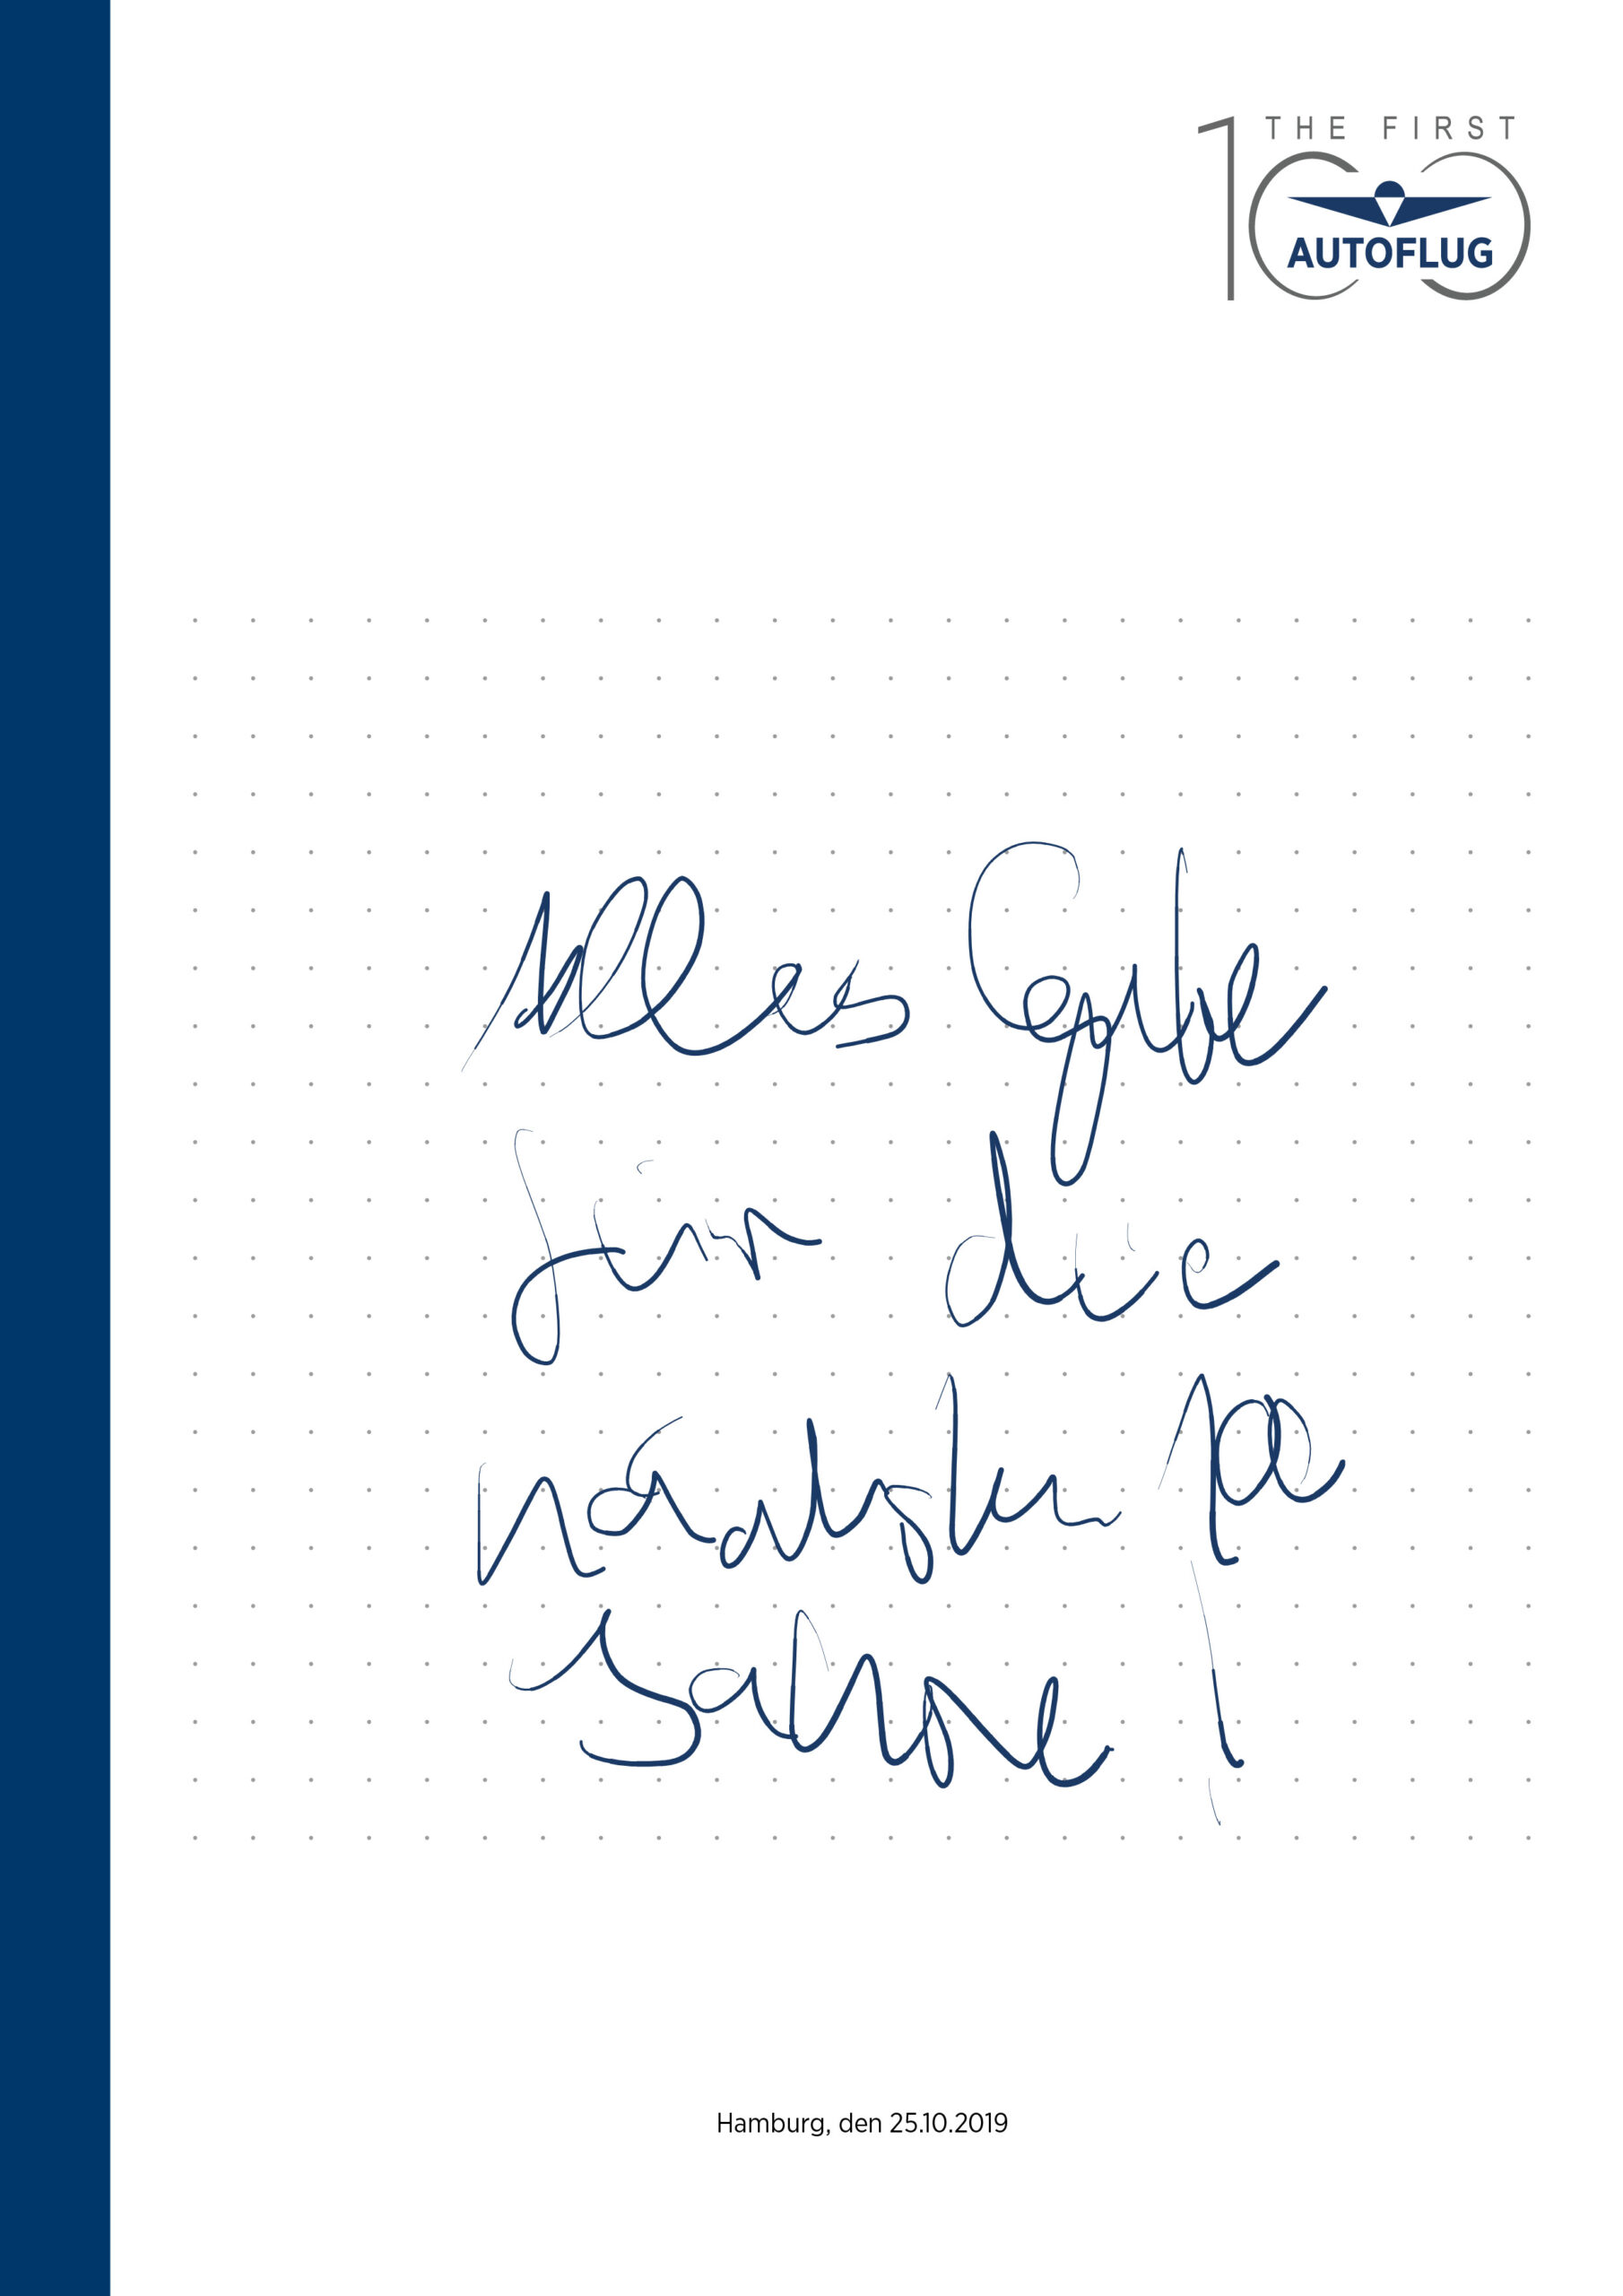 THE FIRST
100
AUTOFLUG
Alles Gute
für die
nächsten 100
Jahre!
Hamburg, den 25.10.2019